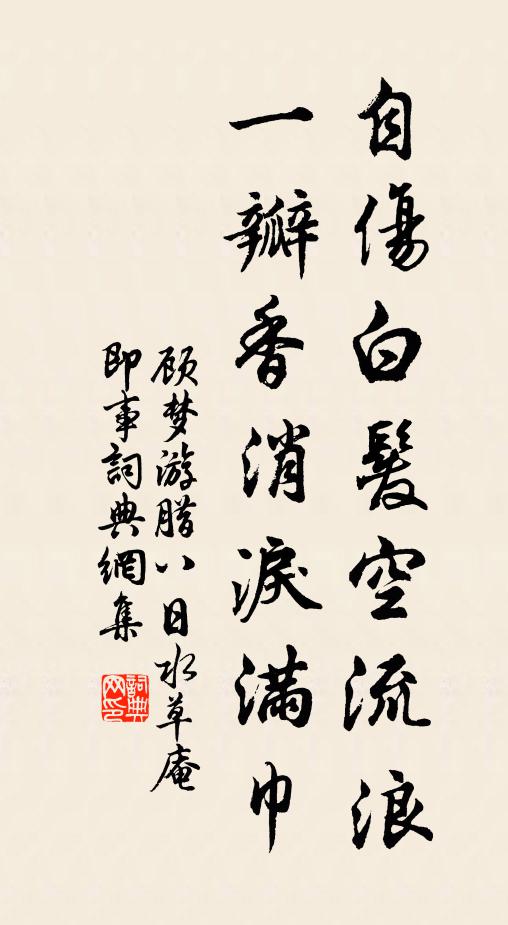 自傷白髮空流浪
一瓣香消淚滿巾
顾梦游腊八日水草庵
即事詞典網集
詞典網印